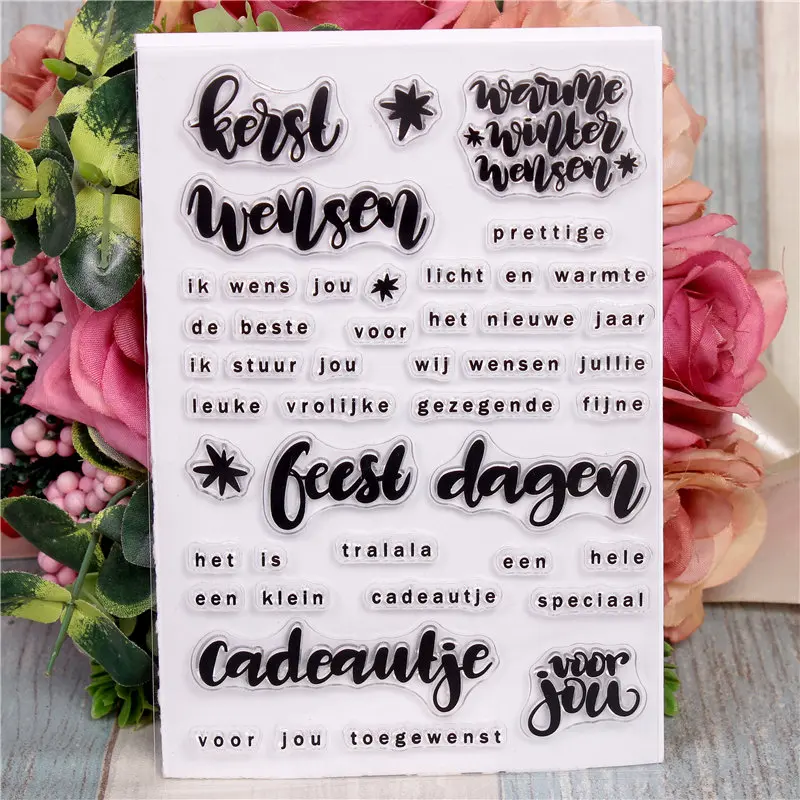 kerst
warme
winter
wensen
wensen
prettige
ik wens jou
licht en warmte
de beste voor
het nieuwe jaar
ik stuur jou
wij wensen jullie
leuke vrolijke gezegende fijne
feest dagen
het is tralala een hele
een klein cadeautje speciaal
cadeautje
voor
jou
voor jou toegewenst